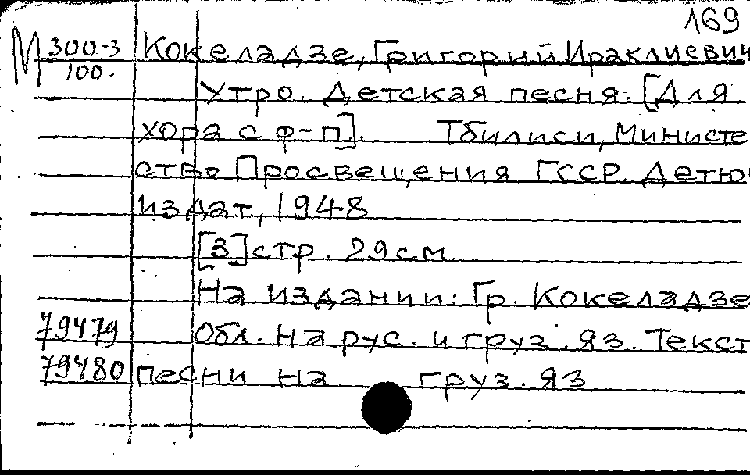 169
М 300-3 Кокеладзе, Григорий Ираклиевич
100.
Утро. Детская песня. [Для
хора с ф-п]. Тбилиси, Министе
ство Просвещения ГССР. Детю
издат, 1948
[3] стр. 29 см
На издании: Гр. Кокеладзе
79479 Обл. на рус. и груз. яз. Текст
79480 песни на груз. яз